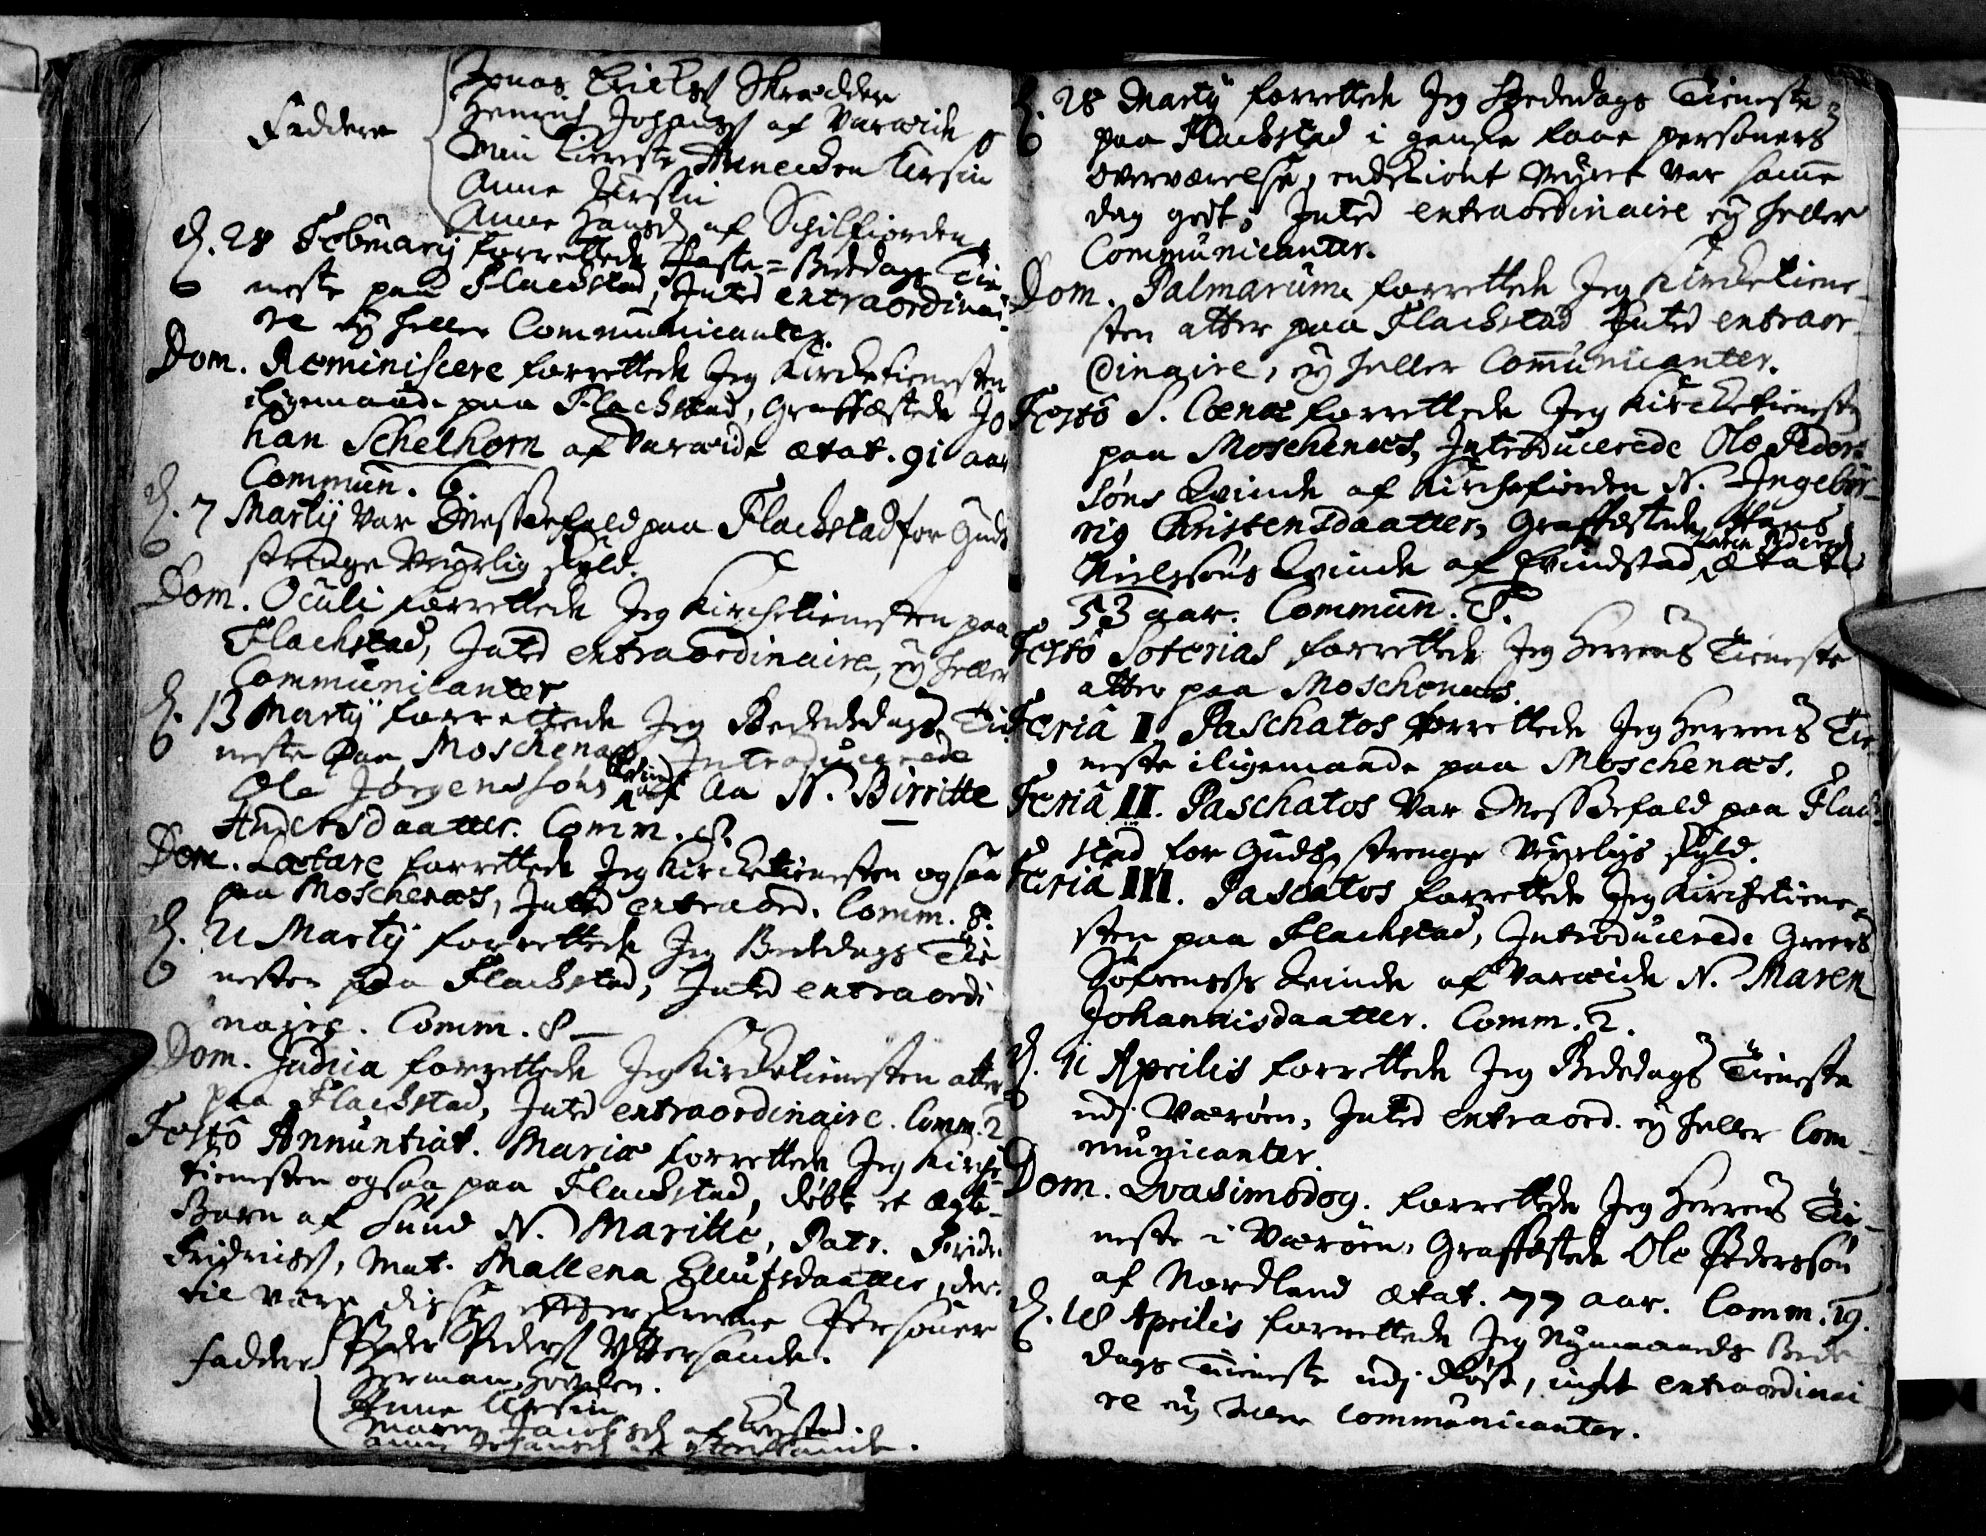 Jonas Erichss Skrædder
Henrich Johanss af Varwiich
Faddere
Min Kiereste Anneken Kirstin
Anne Kirstin
Anne Hansd af Schilfiorden
d. 28 Februarij forrettede Faste-Bededags Tie
neste paa Flachstad, Inted extraordinai-
re ej heller Communicanter.
Dom. Reminiscere forrettede Jeg Kirketienesten
iligemaade paa Flachstad, Graffæstede Jo
han Schelhorn af Varwiich ætat. 91 aar
Commun. 6.
d. 7 Martij var Messefald paa Flachstad for Guds
strenge Veyrlig skyld.
Dom. Oculi forrettede Jeg Kirchetienesten paa
Flachstad, Inted extraordinaire, ej heller
Communicanter
d. 13 Martij forrettede Jeg Bededags Tie
neste paa Moschenæs, Introducerede
Ole Jørgenssøns Qvinde af Aa N. Birritte
Andersdaatter. Comm. 8.
Dom. Lætare forrettede Jeg Kirketienesten ogsaa
paa Moschenæs, Inted extraord. Comm. 8.
d. 21 Martij forrettede Jeg Bededags Tie
nesten paa Flachstad, Inted extraordi
naire. Comm. 8
Dom. Judica forrettede Jeg Kirketienesten atter
paa Flachstad, Inted extraordinaire. Comm. 2
Festo Annuntiat. Mariæ forrettede Jeg Kirche
tienesten ogsaa paa Flachstad, døbt et Ægte
Barn af Sund N. Maritte, Patr. Fride
Fridrichss, Mat. Mallena Ellufsdaatter, der
til vare disse effterskrevne Personer
Faddere Peder Pederss Yttersande.
Herman Hofden.
Anne Kirstin
Maren Jacobsd af
Anne Johansd af Yttersande.
d. 28 Martij forrettede Jeg Bededags Tieneste
paa Flachstad i gandske faae personers
overværelse, endskiønt Veyret var samme
dag godt, Inted extraordinaire ej heller
Communicanter.
Dom. Palmarum forrettede Jeg Kircketiene-
sten atter paa Flachstad Inted extraor-
dinaire, ej heller Communicanter.
Festo S. Coenæ forrettede Jeg Kircketieneste
paa Moschenæs, Introducerede Ole Peder-
søns Qvinde af Kirchefiorden N. Ingebor-
rig Christensdaatter, Graffæstede Hans
Nielssøns Qvinde af Evindstad Karen Pedersd ætat.
53 aar. Commun. 8.
Festo Soterias forrettede Jeg Herrens Tieneste
atter paa Moschenæs.
Feria I Paschatos forrettede Jeg Herrens Tie
neste iligemaade paa Moschenæs.
Feria II. Paschatos var Messefald paa Flach-
stad for Guds strenge Veyrligs skyld.
Feria III. Pascatos forrettede Jeg Kirchetiene-
sten paa Flachstad, Introducerede Greers
Søfrenss Qvinde af Varwiich N. Maren
Johannisdaatter. Comm. 2.
d. 11 Aprilis forrettede Jeg Bededags Tieneste
udj Værøen, Inted extraord. ej heller Com-
municanter.
Dom. Qvasimodog. forrettede Jeg Herrens Tie-
neste i Værøen, Graffæstede Ole Pederssøn
af Nordland ætat. 77 aar. Comm. 19.
d. 18 Aprilis forrettede Jeg Nymaaneds Bede
dags Tieneste udj Røst, intet extraordinai
re ej heller Communicanter.